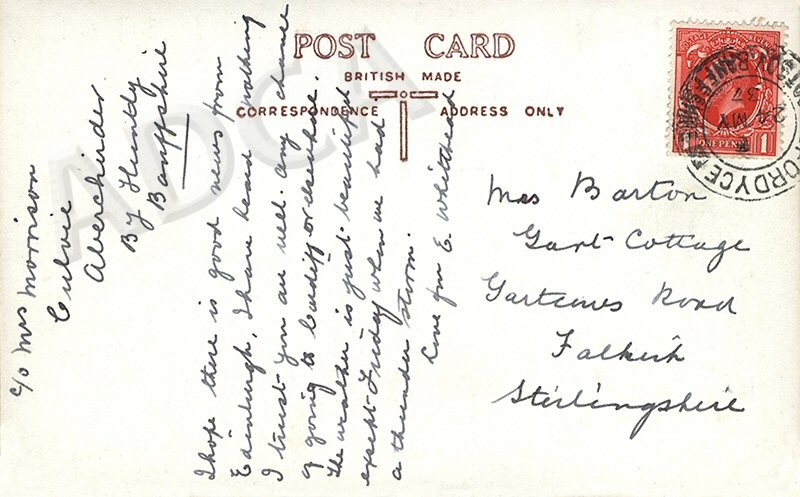 POST CARD
BRITISH MADE
CORRESPONDENCE
ADDRESS ONLY
POSTAGE REVENUE
ONE PENNY
1
FORDYCE
24 MY
37
ADCA
c/o Mrs Morrison
Culvie
Aberchirder
By Huntly
Banffshire
I hope there is good news from
Edinburgh, I have heard nothing
I trust you are well. Any chance
of going to Cardiff or elsewhere.
The weather is just beautiful
except Friday when we had
a thunder storm.
Love fm E. Whitehead
Mrs Barton
Gart Cottage
Gartcows Road
Falkirk
Stirlingshire